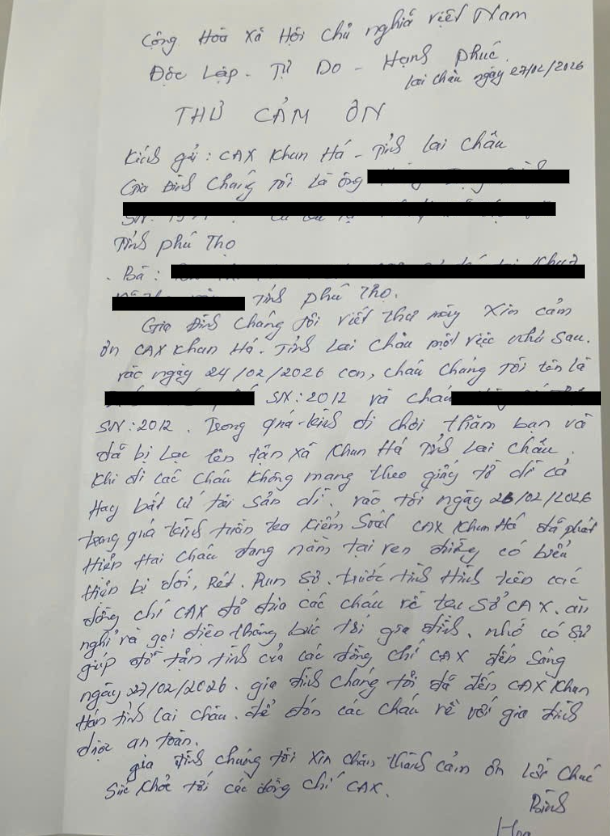 Cộng Hoà Xã Hội Chủ nghĩa Việt Nam
Độc Lập - Tự Do - Hạnh phúc
Lai Châu ngày 27/02/2026
THƯ CẢM ƠN
Kính gửi: CAX Khun Há - Tỉnh Lai Châu
Gia Đình Chúng Tôi Là ông
SN:
Tỉnh phú Thọ
- Bà:
Tỉnh phú Thọ.
Gia Đình Chúng Tôi Viết thư này Xin cảm
ơn CAX Khun Há. Tỉnh Lai Châu một việc như sau.
vào ngày 24/02/2026 con, cháu Chúng Tôi tên là
SN: 2012 và cháu
SN: 2012. Trong quá trình đi chơi thăm bạn và
đã bị Lạc lên tận Xã Khun Há Tỉnh Lai Châu.
Khi đi các cháu không mang theo giấy tờ gì cả
Hay bất cứ tài sản gì. vào tối ngày 26/02/2026
trong quá trình tuần tra kiểm Soát CAX Khun Há đã phát
Hiện Hai cháu đang nằm tại ven đường có biểu
Hiện bị đói, Rét, Run Sợ. trước tình Hình trên các
đồng chí CAX đã đưa các cháu về trụ Sở CAX. ăn
nghỉ và gọi điện thông báo tới gia đình. nhờ có Sự
giúp đỡ tận tình của các đồng chí CAX đến Sáng
ngày 27/02/2026. gia đình chúng tôi đã đến CAX Khun
Há tỉnh Lai Châu. để đón các cháu về với gia đình
được an toàn.
gia đình chúng tôi xin chân thành cảm ơn Lời Chúc
Sức Khỏe tới các đồng chí CAX.